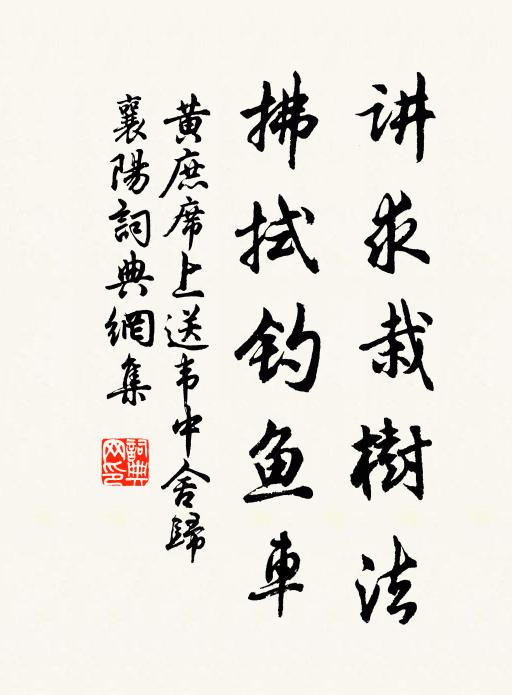 讲求栽樹法
拂拭钓鱼車
黄庶席上送韦中舍歸
襄陽詞典網集
詞典
网印